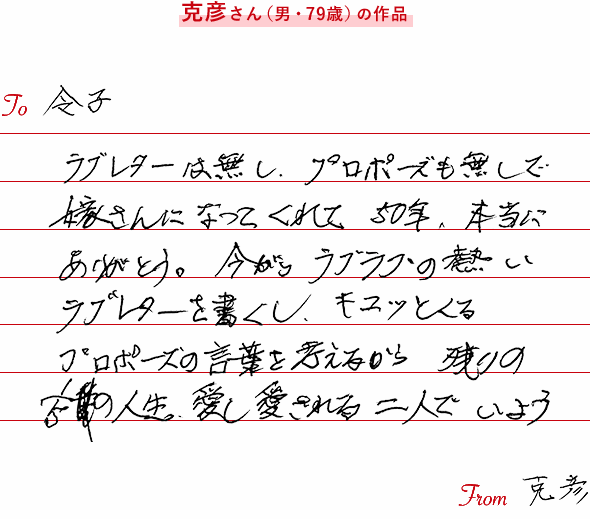 克彦さん（男・79歳）の作品
To 令子
ラブレターは無し、プロポーズも無しで
嫁さんになってくれて 50年、本当に
ありがとう。今から ラブラブの熱い
ラブレターを書くし、キュッとくる
プロポーズの言葉を考えるから 残りの
の人生、愛し愛される二人で いよう
From 克彦